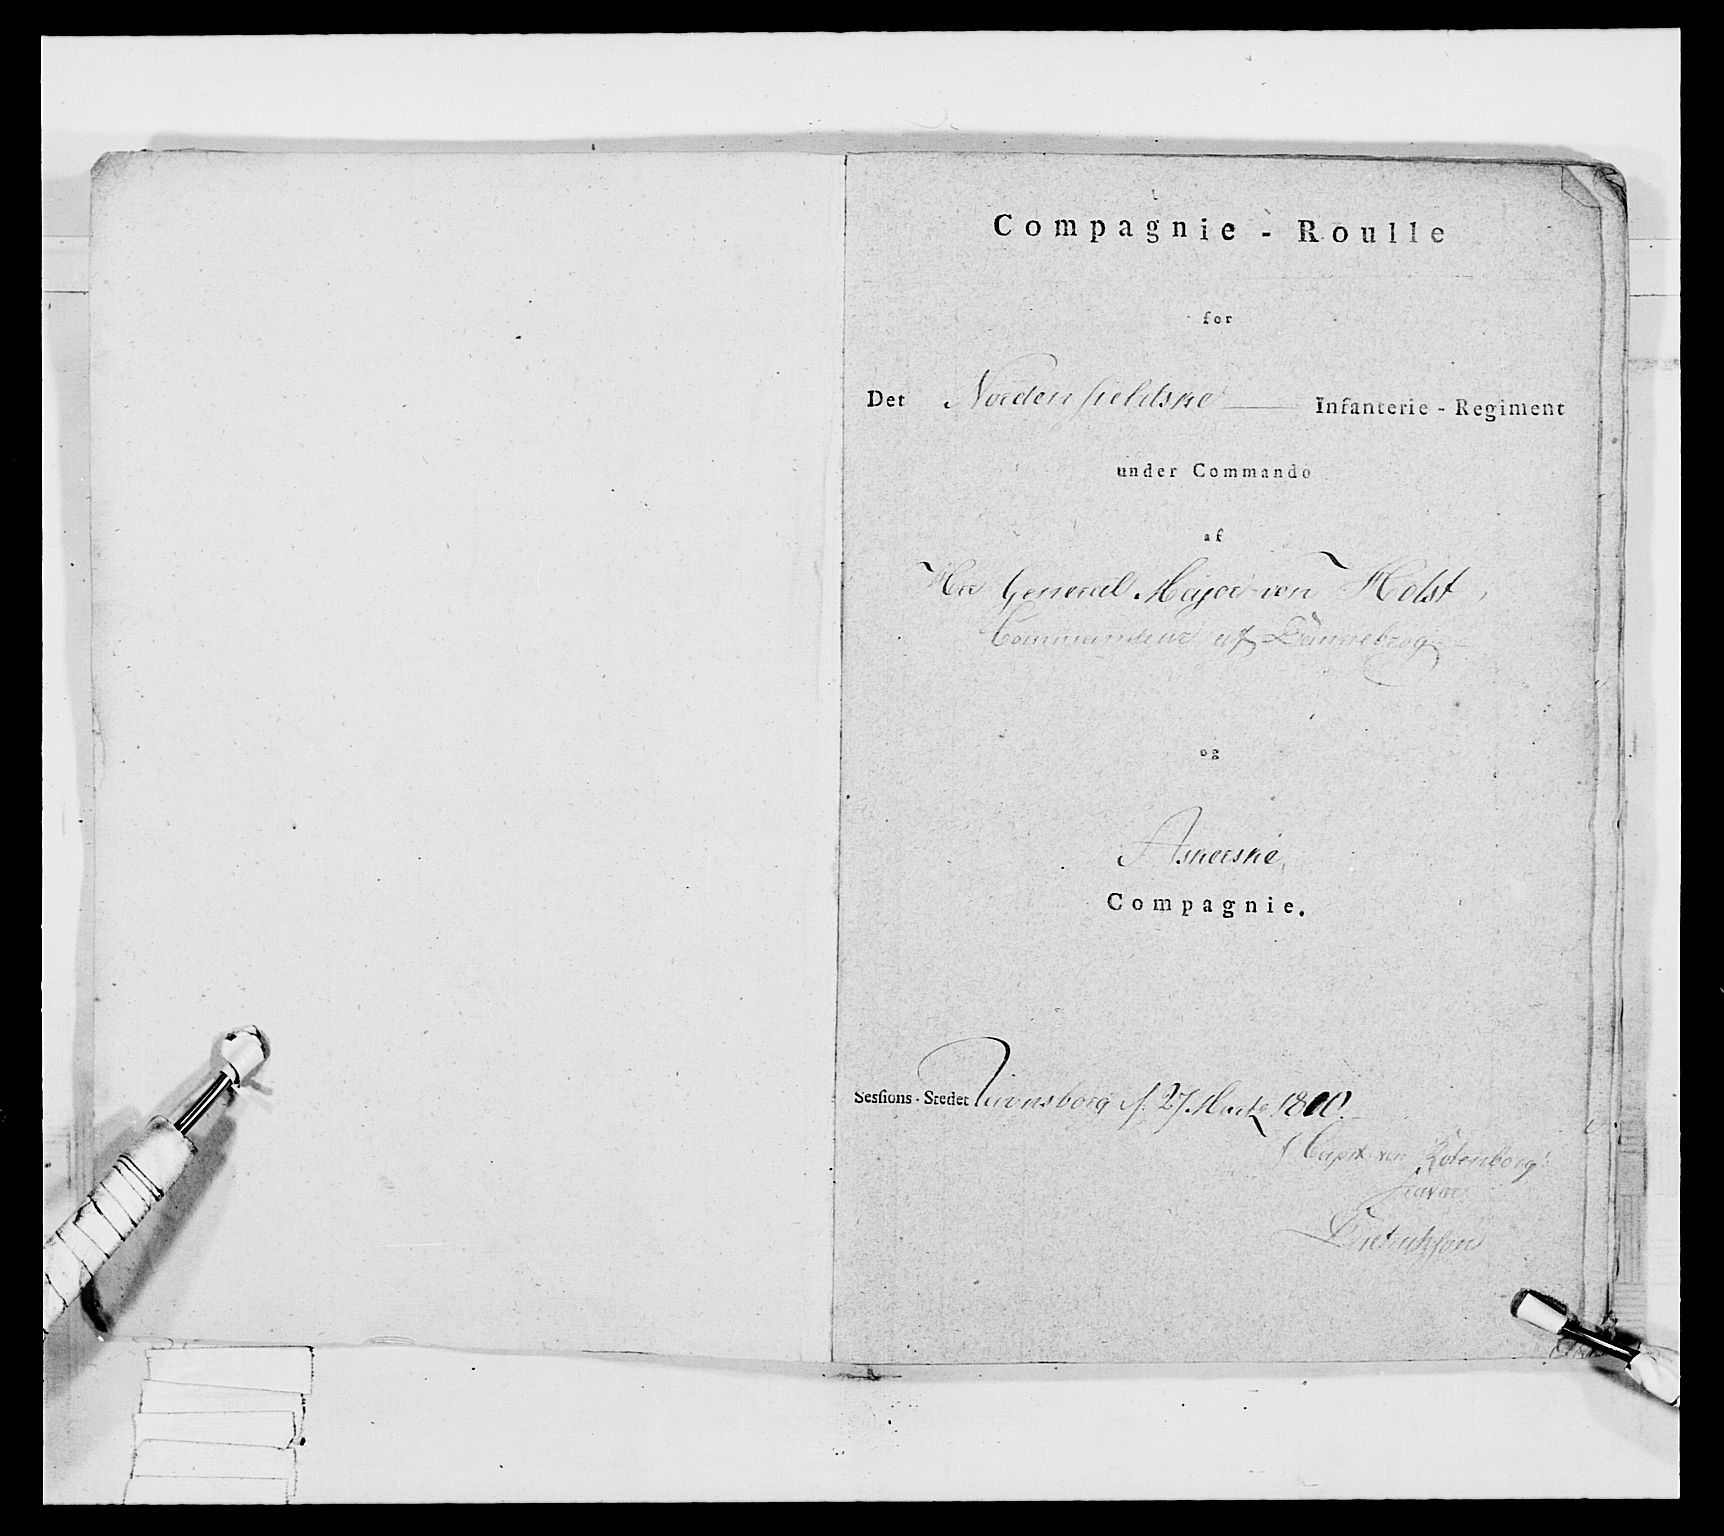 Compagnie - Roulle
for
Det Nordenfieldske Infanterie - Regiment
under Commando
af
Hrr General Major von Holst,
Commandeur af Dannebrog
og
Askerske
Compagnie.
Sesfions-Stedet d. 27 Martz 1800.
Capit von